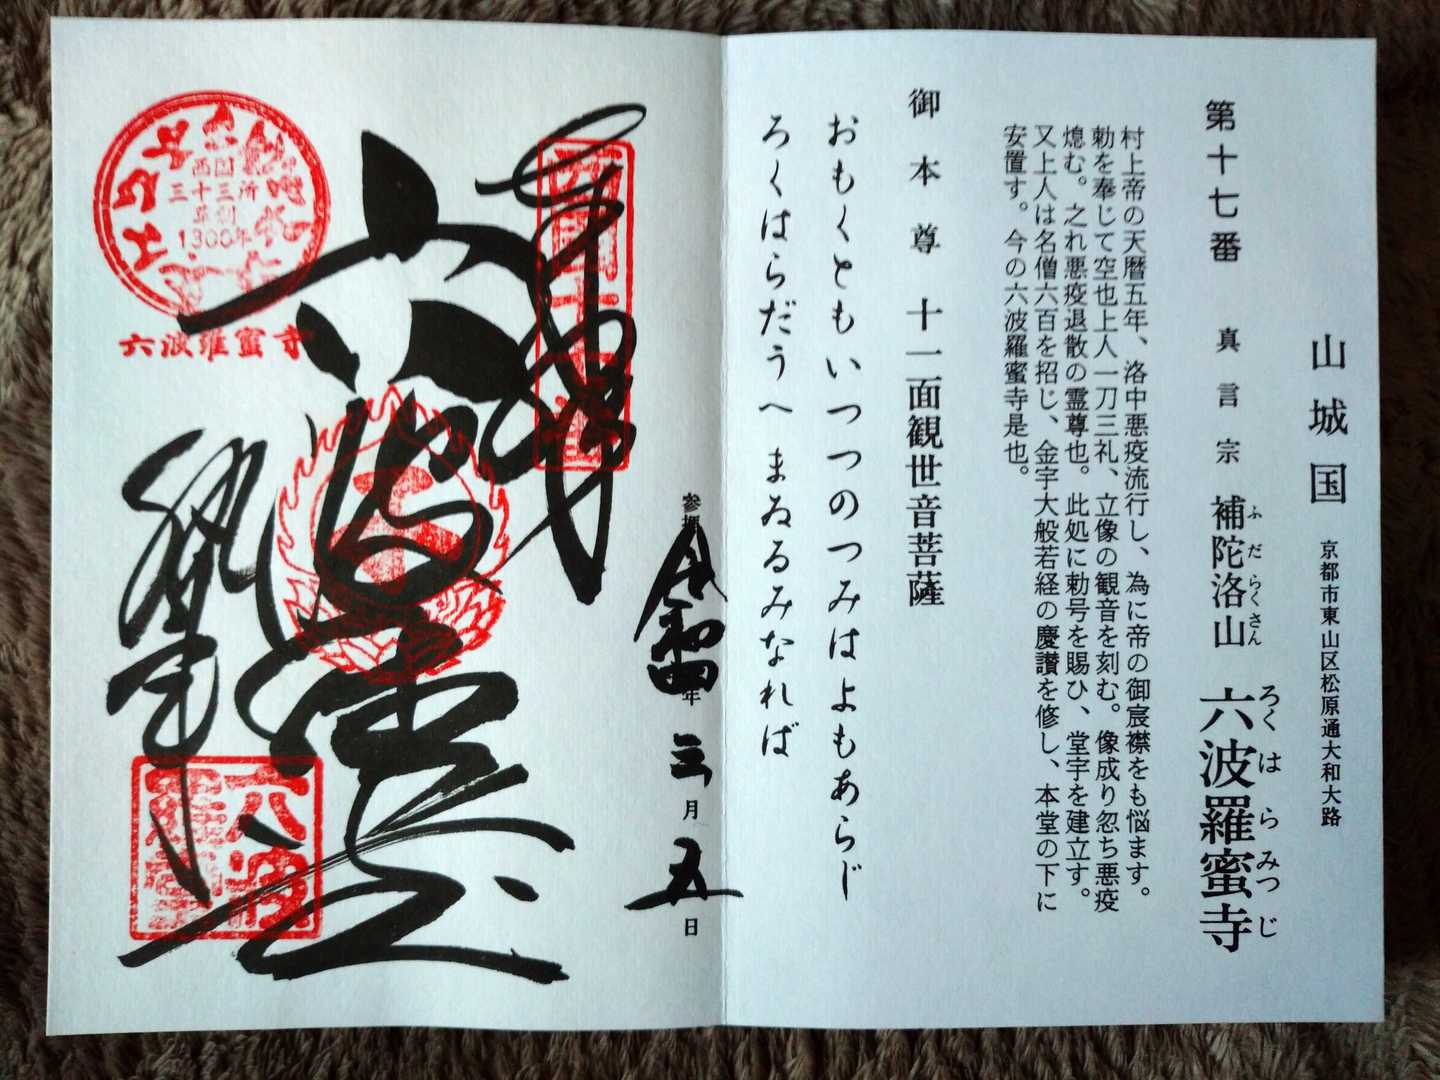 山城国 京都市東山区松原通大和大路
第十七番 真言宗 補陀洛山 六波羅蜜寺
ふだらくさん ろくはらみつじ
村上帝の天暦五年、洛中悪疫流行し、為に帝の御宸襟をも悩ます。
勅を奉じて空也上人一刀三礼、立像の観音を刻む。像成り忽ち悪疫
熄む。之れ悪疫退散の霊尊也。此処に勅号を賜ひ、堂宇を建立す。
又上人は名僧六百を招じ、金字大般若経の慶讃を修し、本堂の下に
安置す。今の六波羅蜜寺是也。
御本尊 十一面観世音菩薩
おもくともいつつのつみはよもあらじ
ろくはらだうへまゐるみなれば
参拝 令和四年 三月 五日
奉拝
西国十七番
六波羅堂
六波羅蜜寺
西国
三十三所
草創
1300年
六波羅蜜寺
六波羅蜜寺